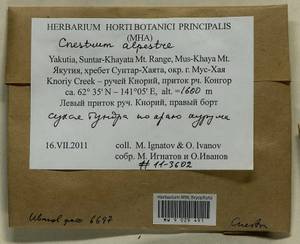 HERBARIUM HORTI BOTANICI PRINCIPALIS
(MHA)
Cnestrum alpestre
Yakutia, Suntar-Khayata Mt. Range, Mus-Khaya Mt.
Якутия, хребет Сунтар-Хаята, окр. г. Мус-Хая
Knoriy Creek – ручей Кнорий, приток рч. Конгор
ca. 62° 35' N – 141°05' E, alt. =1600 m
Левый приток руч. Кнорий, правый борт
сухая тундра по краю
16.VII.2011
coll. M. Ignatov & O. Ivanov
собр. М. Игнатов и О.Иванов
# 11-3602
Herbarium MHA, Bryophyta
MW 9 029 491